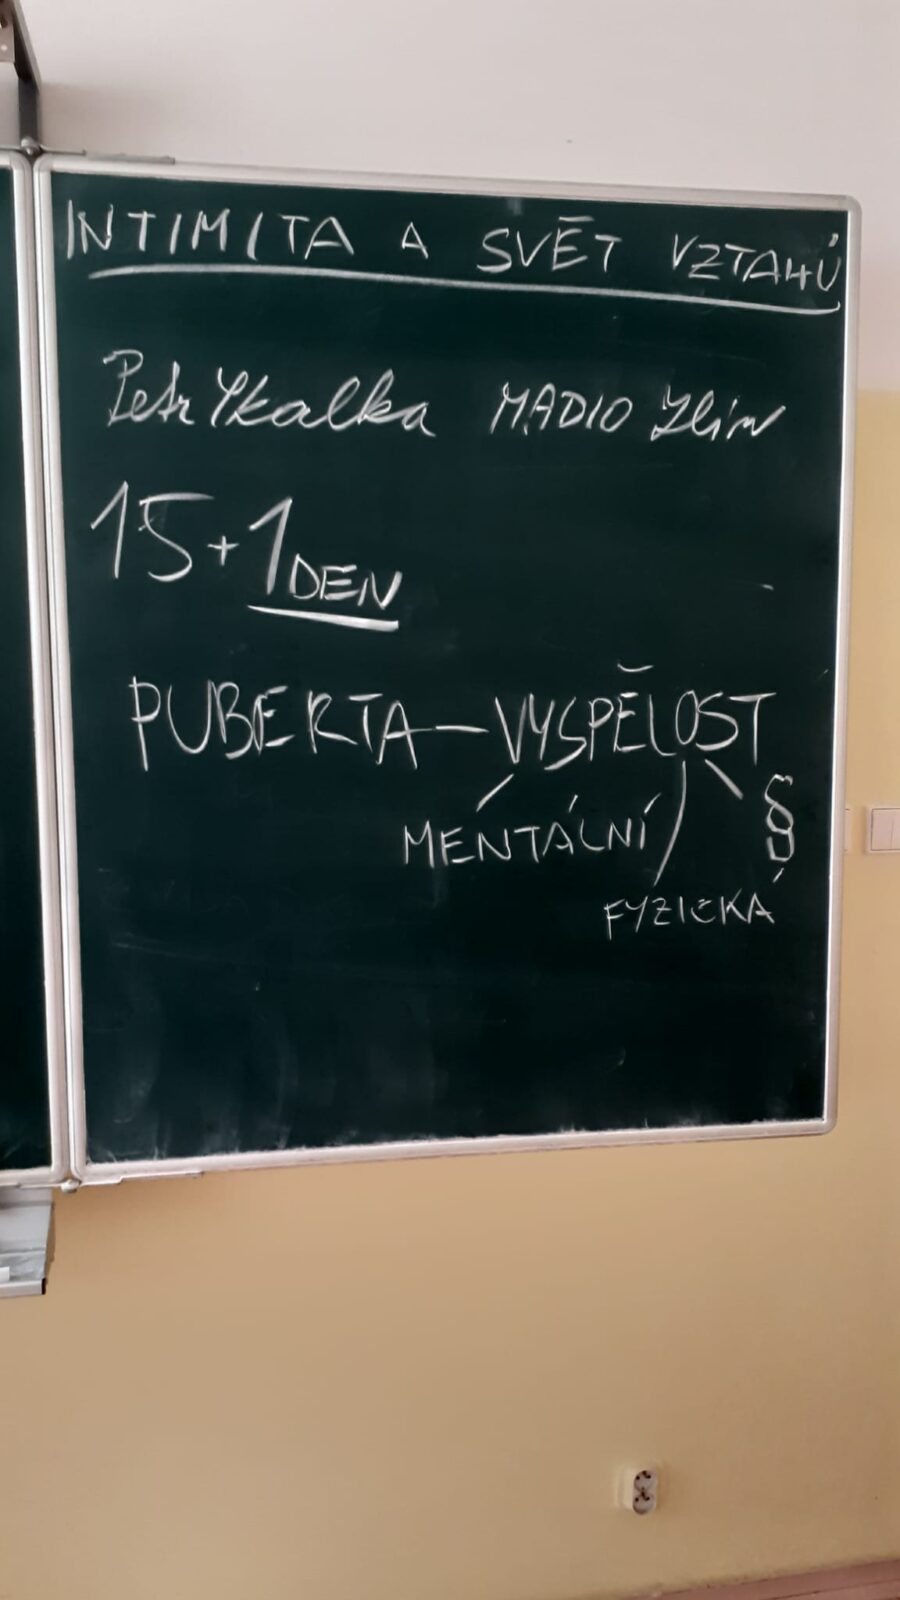 INTIMITA A SVĚT VZTAHŮ
Petr Skalka MADIO Zlín
15+1 DEN
PUBERTA – VYSPĚLOST
MENTÁLNÍ §
FYZICKÁ